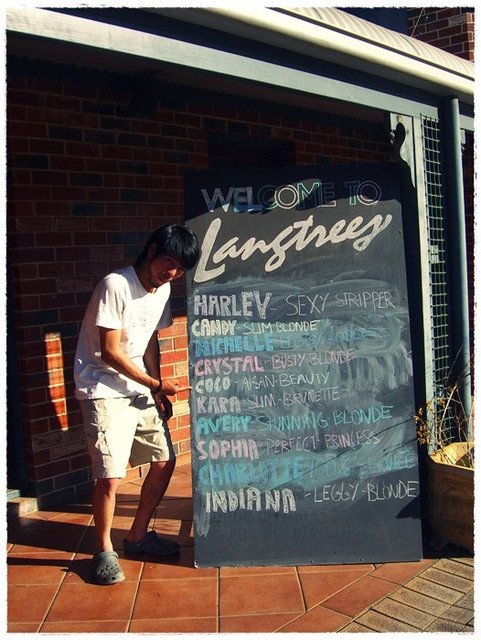 WELCOME TO
Langtrees
HARLEY - SEXY STRIPPER
CANDY - SLIM BLONDE
MICHELLE
CRYSTAL - BUSTY BLONDE
COCO - AISAN-BEAUTY
KARA - SLIM-BRUNETTE
AVERY STUNNING BLONDE
SOPHIA - PERFECT PRINCESS
CHARLOTTE SERVICE
INDIANA - LEGGY-BLONDE